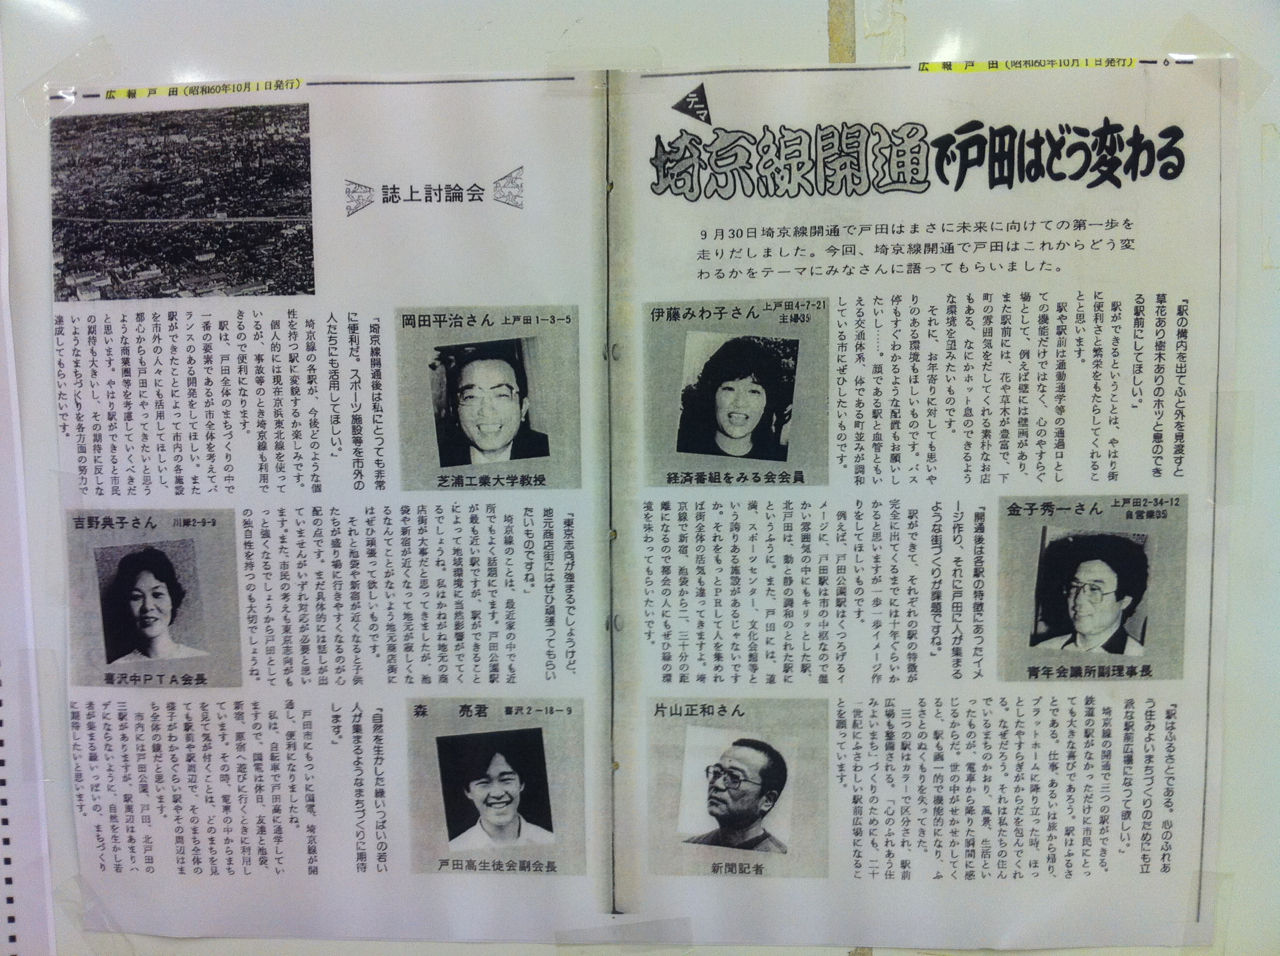 広報戸田(昭和60年10月1日発行) — 6 —
テーマ
埼京線開通で戸田はどう変わる
9月30日埼京線開通で戸田はまさに未来に向けての第一歩を
走りだしました。今回、埼京線開通で戸田はこれからどう変
わるかをテーマにみなさんに語ってもらいました。
伊藤みわ子さん 上戸田4-7-21
主婦35
経済番組をみる会会員
『駅の構内を出てふと外を見渡すと
草花あり樹木ありのホッと息のでき
る駅前にしてほしい。』
駅ができるということは、やはり街
に便利さと繁栄をもたらしてくれるこ
とと思います。
駅や駅前は通勤通学等の通過口とし
ての機能だけではなく、心のやすらぐ
場として、例えば壁には壁画があり、
また駅前には、花や草木が豊富で、下
町の雰囲気をだしてくれる素朴なお店
もある、なにかホット息のできるよう
な環境を望みたいものです。
それに、お年寄りに対しても思いや
りのある環境もほしいものです。バス
停もすぐわかるような配置もお願いし
たいし……。顔である駅と血管ともい
える交通体系、体である町並みが調和
している市にぜひしたいものです。
金子秀一さん 上戸田2-34-12
自営業35
青年会議所副理事長
『開通後は各駅の特徴にあったイメ
ージ作り、それに戸田に人が集まる
ような街づくりが課題ですね。』
駅ができて、それぞれの駅の特徴が
完全に出てくるまでには十年ぐらいか
かると思いますが一歩一歩イメージ作
りをしてほしいものです。
例えば、戸田公園駅はくつろげるイ
メージに、戸田駅は市の中枢なので暖
かい雰囲気の中にもキリッとした駅、
北戸田は、動と静の調和のとれた駅に
というふうに。また、戸田には、道
満、スポーツセンター、文化会館等と
いう誇りある施設があるじゃないです
か。それをもっとPRして人を集めれ
ば街全体の活気も違ってきますよ。埼
京線で新宿、池袋から二、三十分の距
離になるので都会の人にもぜひ緑の環
境を味わってもらいたいです。
片山正和さん
新聞記者
『駅はふるさとである。心のふれあ
う住みよいまちづくりのためにも立
派な駅前広場になって欲しい。』
埼京線の開通で三つの駅ができる。
鉄道の駅がなかっただけに市民にとっ
ても大きな喜びであろう。駅はふるさ
とである。仕事、あるいは旅から帰り、
プラットホームに降り立った時、ほっ
としたやすらぎがからだを包んでくれ
る。なぜだろう。それは私たちの住ん
でいるまちのかおり、風景、生活とい
ったものが、電車から降りた瞬間に感
じるからだ。世の中がせかせかしてく
ると、駅も画一的で機能的になり、ふ
るさとのぬくもりを失ってきた。
三つの駅はカラーで区分され、駅前
広場も整備される。「心のふれあう住
みよいまち」づくりのためにも、二十
一世紀にふさわしい駅前広場になるこ
とを願っています。
広報戸田(昭和60年10月1日発行)
誌上討論会
岡田平治さん 上戸田1-3-5
芝浦工業大学教授
『埼京線開通後は私にとっても非常
に便利だ。スポーツ施設等を市外の
人たちにも活用してほしい。』
埼京線の各駅が、今後どのような個
性を持つ駅に変貌するか楽しみです。
個人的には現在京浜東北線を使って
いるが、事故等のとき埼京線も利用で
きるので便利になります。
駅は、戸田全体のまちづくりの中で
一番の要素であるが市全体を考えてバ
ランスのある開発をしてほしい。また
駅ができたことによって市内の各施設
を市外の人々にも活用してほしいし、
都心からも戸田にやってきたいと思う
ような商業圏等を考慮していくべきだ
と思います。やはり駅ができると市民
の期待も大きいし、その期待に反しな
いようなまちづくりを各方面の努力で
達成してもらいたいです。
吉野典子さん 川岸2-9-9
喜沢中PTA会長
『東京志向が強まるでしょうけど、
地元商店街にはぜひ頑張ってもらい
たいものですね。』
埼京線のことは、最近家の中でも近
所でもよく話題にでます。戸田公園駅
が最も近い駅ですが、駅ができると
によって地域環境に当然影響がでてく
るでしょうね。私はかねがね地元の商
店街が大事だと思ってきましたが、池
袋や新宿が近くなって地元が寂しくな
るなんてことがないよう地元商店街に
はぜひ頑張って欲しいものです。
それと池袋や新宿が近くなると子供
たちが盛り場に行きやすくなるのが心
配の点です。まだ具体的には話しが出
ていませんがいずれ対応が必要と思い
ます。また、市民の考えも東京志向がも
っと強くなるでしょうから戸田として
の独自性を持つのも大切でしょうね。
森 亮君 喜沢2-18-9
戸田高生徒会副会長
『自然を生かした緑いっぱいの若い
人が集まるようなまちづくりに期待
します。』
戸田市にもついに国電、埼京線が開
通し、便利になりましたね。
私は、自転車で戸田高に通学してい
ますので、国電は休日、友達と池袋、
新宿、原宿へ遊びに行くときに利用し
ています。その時、電車の中からまち
を見て気が付くことは、どのまちを見
ても駅前や駅周辺で、そのまち全体の
様子がわかるぐらい駅やその周辺はま
ち全体の鏡だと思います。
市内には戸田公園、戸田、北戸田の
三駅がありますが、駅周辺はあまりハ
デにならないように、自然を生かし若
者が集まる緑いっぱいの、まちづくり
に期待したいと思います。